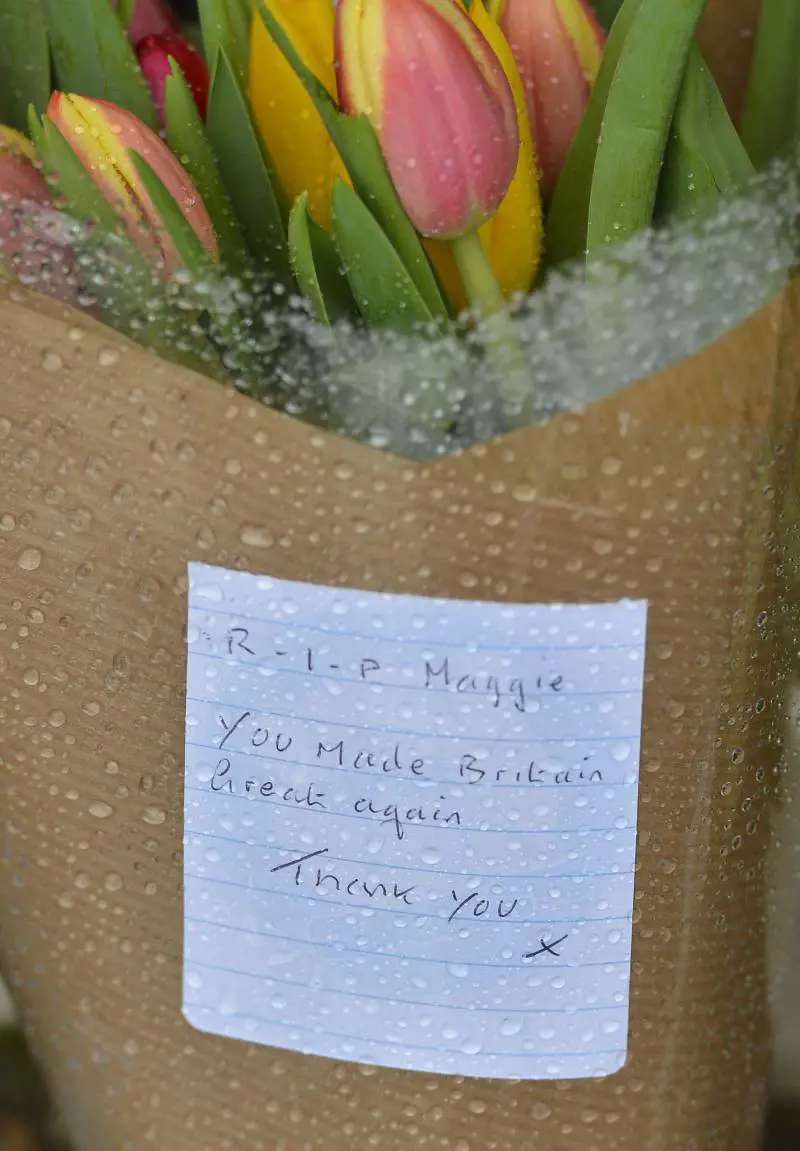 R-I-P Maggie
You Made Britain
Great again
Thank You
x